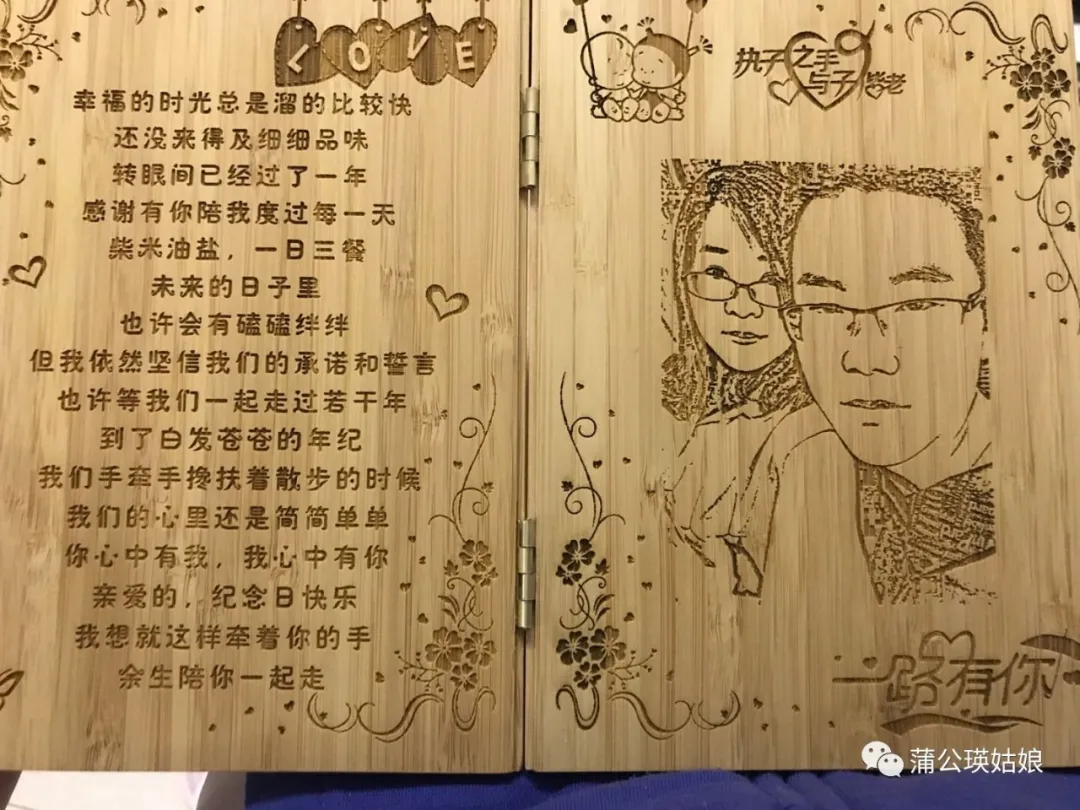 LOVE
幸福的时光总是溜的比较快
还没来得及细细品味
转眼间已经过了一年
感谢有你陪我度过每一天
柴米油盐，一日三餐
未来的日子里
也许会有磕磕绊绊
但我依然坚信我们的承诺和誓言
也许等我们一起走过若干年
到了白发苍苍的年纪
我们手牵手搀扶着散步的时候
我们的心里还是简简单单
你心中有我，我心中有你
亲爱的，纪念日快乐
我想就这样牵着你的手
余生陪你一起走
执子之手
与子偕老
一路有你
蒲公瑛姑娘